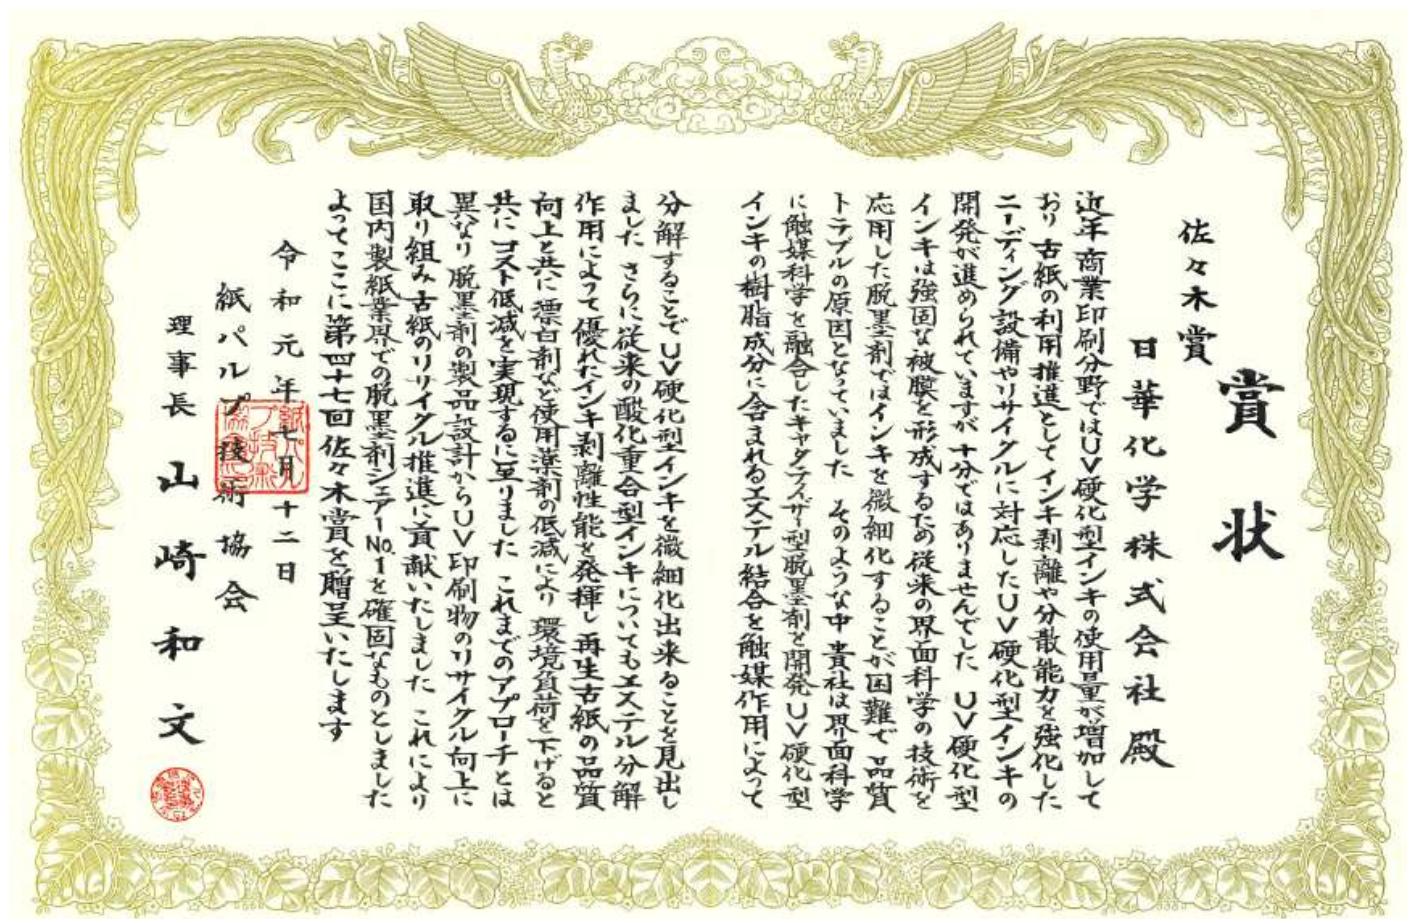 賞状
佐々木賞
日華化学株式会社殿
近年商業印刷分野ではUV硬化型インキの使用量が増加して
おり 古紙の利用推進として インキ剥離や分散能力を強化した
ニーディング設備やリサイクルに対応したUV硬化型インキの
開発が進められていますが 十分ではありませんでした UV硬化型
インキは強固な被膜を形成するため従来の界面科学の技術を
応用した脱墨剤ではインキを微細化することが困難で 品質
トラブルの原因となっていました そのような中 貴社は界面科学
に触媒科学を融合したキャタライザー型脱墨剤を開発 UV硬化型
インキの樹脂成分に含まれるエステル結合を触媒作用によって
分解することでUV硬化型インキを微細化出来ることを見出し
ました さらに従来の酸化重合型インキについてもエステル分解
作用によって優れたインキ剥離性能を発揮し 再生古紙の品質
向上と共に 漂白剤など使用薬剤の低減により 環境負荷を下げると
共に コスト低減を実現するに至りました これまでのアプローチとは
異なり 脱墨剤の製品設計からUV印刷物のリサイクル向上に
取り組み 古紙のリサイクル推進に貢献いたしました これにより
国内製紙業界での脱墨剤シェアーNo.1を確固なものとしました
よってここに第四十七回佐々木賞を贈呈いたします
令和元年七月十二日
紙パルプ技術協会
理事長 山崎和文